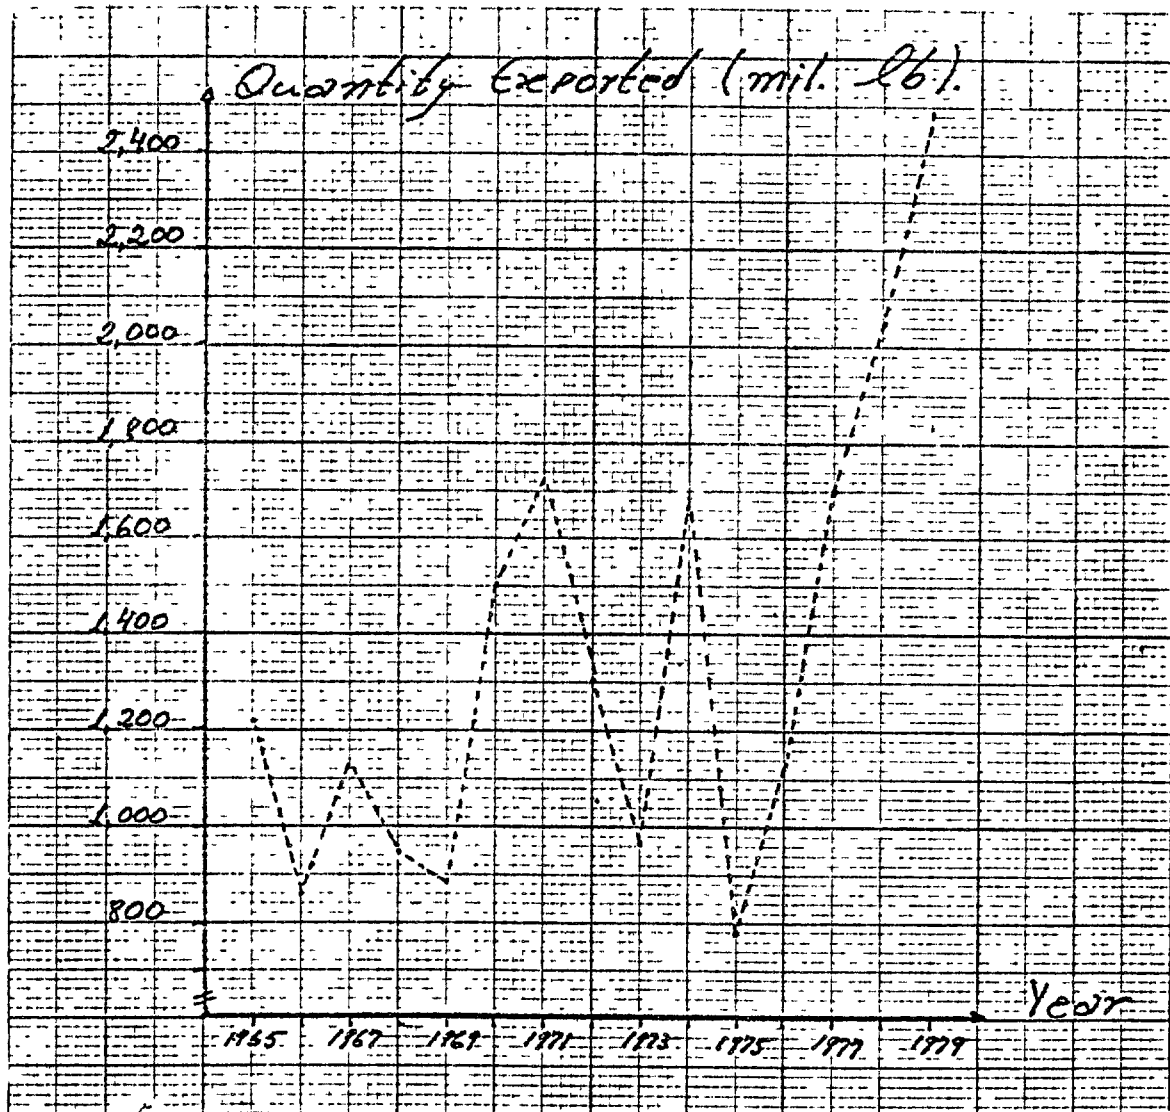 Quantity Exported (mil. lb).
2,400
2,200
2,000
1,800
1,600
1,400
1,200
1,000
800
Year
1965 1967 1969 1971 1973 1975 1977 1979